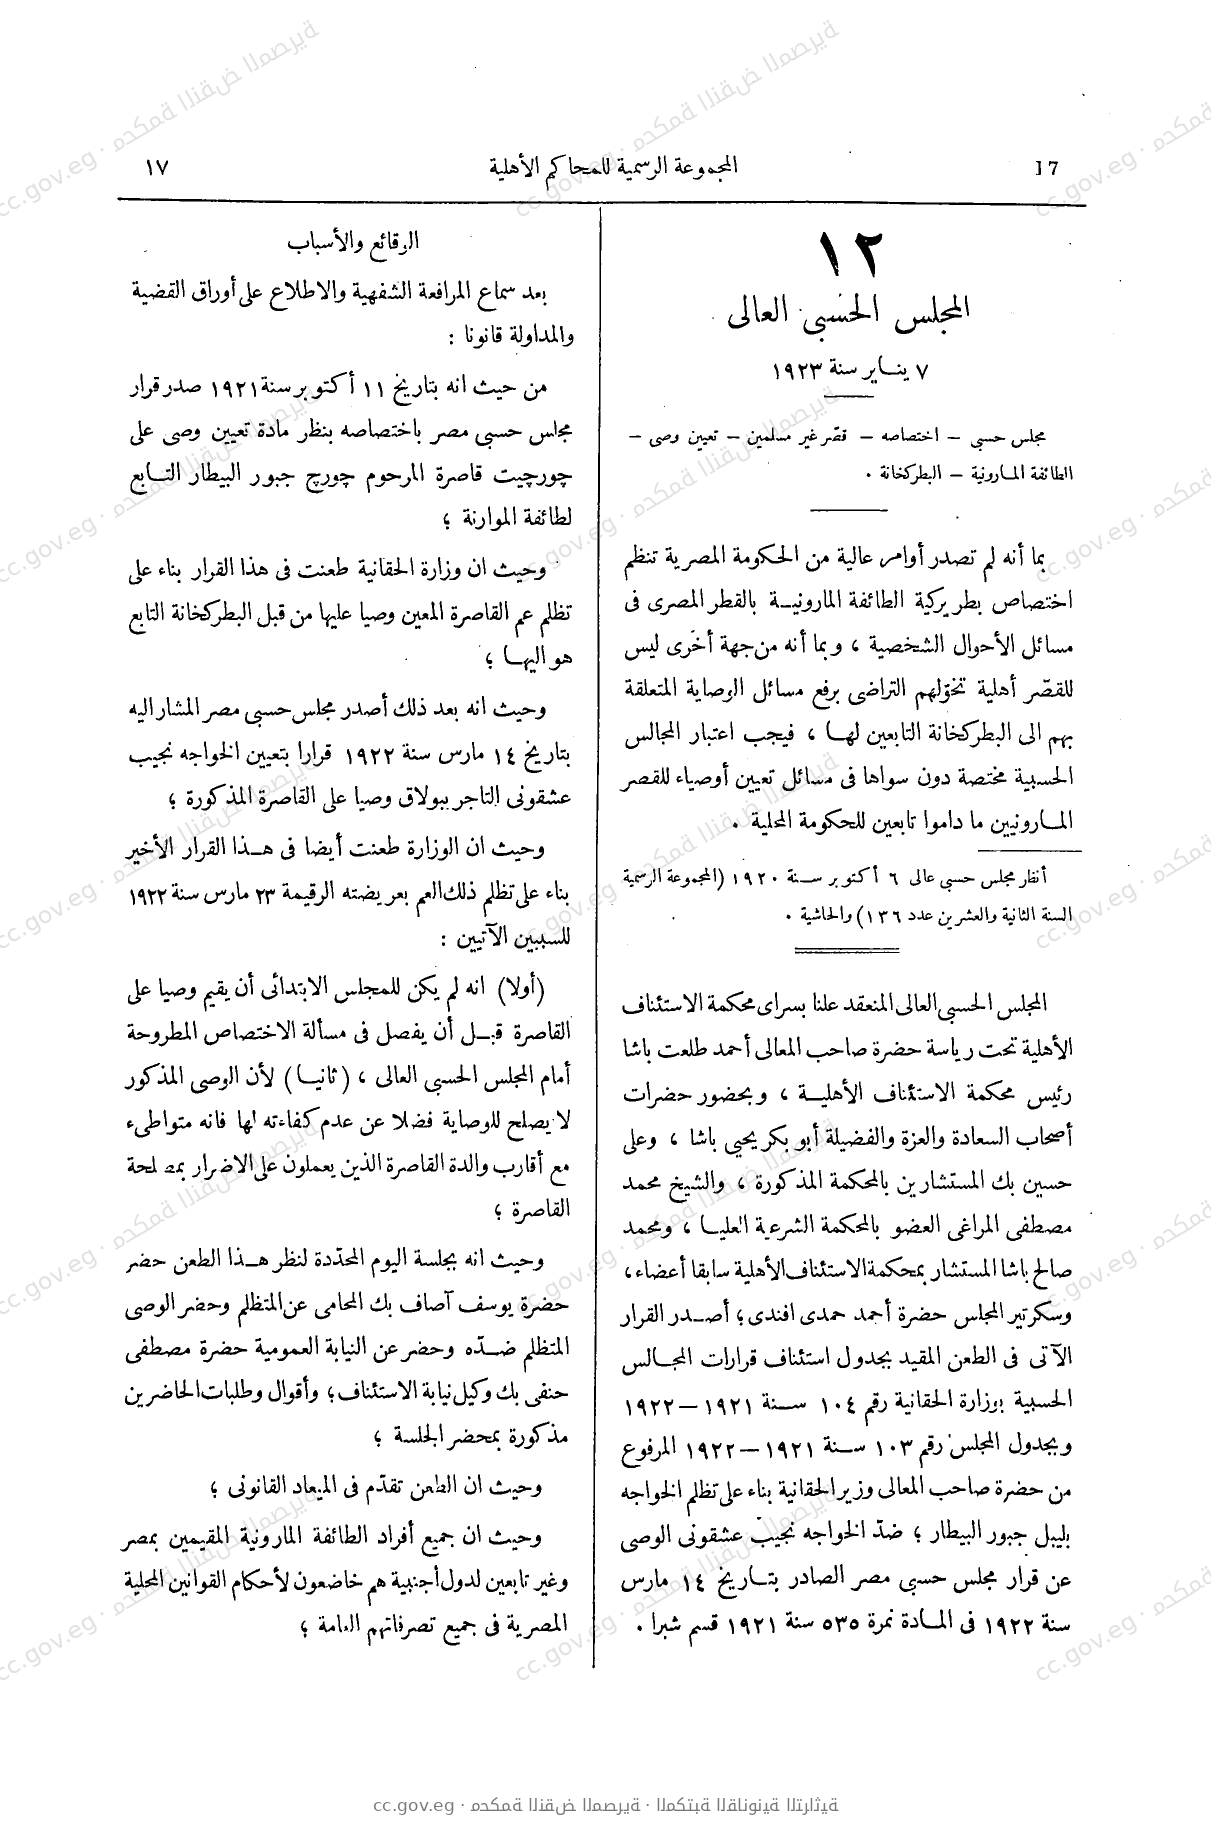 17
المجموعة الرسمية للمحاكم الأهلية
١٧
١٢
المجلس الحسبى العالى
٧ يناير سنة ١٩٢٣
مجلس حسبى – اختصاصه – قصّر غير مسلمين – تعيين وصى –
الطائفة المارونية – البطركخانة .
بما أنه لم تصدر أوامر عالية من الحكومة المصرية تنظم
اختصاص بطريركية الطائفة المارونية بالقطر المصرى فى
مسائل الأحوال الشخصية ، وبما أنه من جهة أخرى ليس
للقصّر أهلية تخوّلهم التراضى برفع مسائل الوصاية المتعلقة
بهم الى البطركخانة التابعين لها ، فيجب اعتبار المجالس
الحسبية مختصة دون سواها فى مسائل تعيين أوصياء للقصر
المارونيين ما داموا تابعين للحكومة المحلية .
أنظر مجلس حسبى عالى ٦ أكتوبر سنة ١٩٢٠ (المجموعة الرسمية
السنة الثانية والعشرين عدد ١٣٦) والحاشية .
المجلس الحسبى العالى المنعقد علنا بسراى محكمة الاستئناف
الأهلية تحت رياسة حضرة صاحب المعالى أحمد طلعت باشا
رئيس محكمة الاستئناف الأهلية ، وبحضور حضرات
أصحاب السعادة والعزة والفضيلة أبو بكر يحيى باشا ، وعلى
حسين بك المستشارين بالمحكمة المذكورة ، والشيخ محمد
مصطفى المراغى العضو بالمحكمة الشرعية العليا ، ومحمد
صالح باشا المستشار بمحكمة الاستئناف الأهلية سابقا أعضاء ،
وسكرتير المجلس حضرة أحمد حمدى افندى ؛ أصدر القرار
الآتى فى الطعن المقيد بجدول استئناف قرارات المجالس
الحسبية بوزارة الحقانية رقم ١٠٤ سنة ١٩٢١ – ١٩٢٢
وبجدول المجلس رقم ١٠٣ سنة ١٩٢١ – ١٩٢٢ المرفوع
من حضرة صاحب المعالى وزير الحقانية بناء على تظلم الخواجه
بليبل جبور البيطار ؛ ضدّ الخواجه نجيب عشقونى الوصى
عن قرار مجلس حسبى مصر الصادر بتاريخ ١٤ مارس
سنة ١٩٢٢ فى المادة نمرة ٥٣٥ سنة ١٩٢١ قسم شبرا .
الوقائع والأسباب
بعد سماع المرافعة الشفهية والاطلاع على أوراق القضية
والمداولة قانونا :
من حيث انه بتاريخ ١١ أكتوبر سنة ١٩٢١ صدر قرار
مجلس حسبى مصر باختصاصه بنظر مادة تعيين وصى على
چورچيت قاصرة المرحوم چورچ جبور البيطار التابع
لطائفة الموارنة ؛
وحيث ان وزارة الحقانية طعنت فى هذا القرار بناء على
تظلم عم القاصرة المعين وصيا عليها من قبل البطركخانة التابع
هو اليها ؛
وحيث انه بعد ذلك أصدر مجلس حسبى مصر المشار اليه
بتاريخ ١٤ مارس سنة ١٩٢٢ قرارا بتعيين الخواجه نجيب
عشقونى التاجر ببولاق وصيا على القاصرة المذكورة ؛
وحيث ان الوزارة طعنت أيضا فى هذا القرار الأخير
بناء على تظلم ذلك العم بعريضته الرقيمة ٢٣ مارس سنة ١٩٢٢
للسببين الآتيين :
(أولا) انه لم يكن للمجلس الابتدائى أن يقيم وصيا على
القاصرة قبل أن يفصل فى مسألة الاختصاص المطروحة
أمام المجلس الحسبى العالى ، (ثانيا) لأن الوصى المذكور
لا يصلح للوصاية فضلا عن عدم كفاءته لها فانه متواطىء
مع أقارب والدة القاصرة الذين يعملون على الاضرار بمصلحة
القاصرة ؛
وحيث انه بجلسة اليوم المحدّدة لنظر هذا الطعن حضر
حضرة يوسف آصاف بك المحامى عن المتظلم وحضر الوصى
المتظلم ضدّه وحضر عن النيابة العمومية حضرة مصطفى
حنفى بك وكيل نيابة الاستئناف ؛ وأقوال وطلبات الحاضرين
مذكورة بمحضر الجلسة ؛
وحيث ان الطعن تقدّم فى الميعاد القانونى ؛
وحيث ان جميع أفراد الطائفة المارونية المقيمين بمصر
وغير تابعين لدول أجنبية هم خاضعون لأحكام القوانين المحلية
المصرية فى جميع تصرفاتهم العامة ؛
cc.gov.eg · محكمة النقض المصرية · المكتبة القانونية التراثية